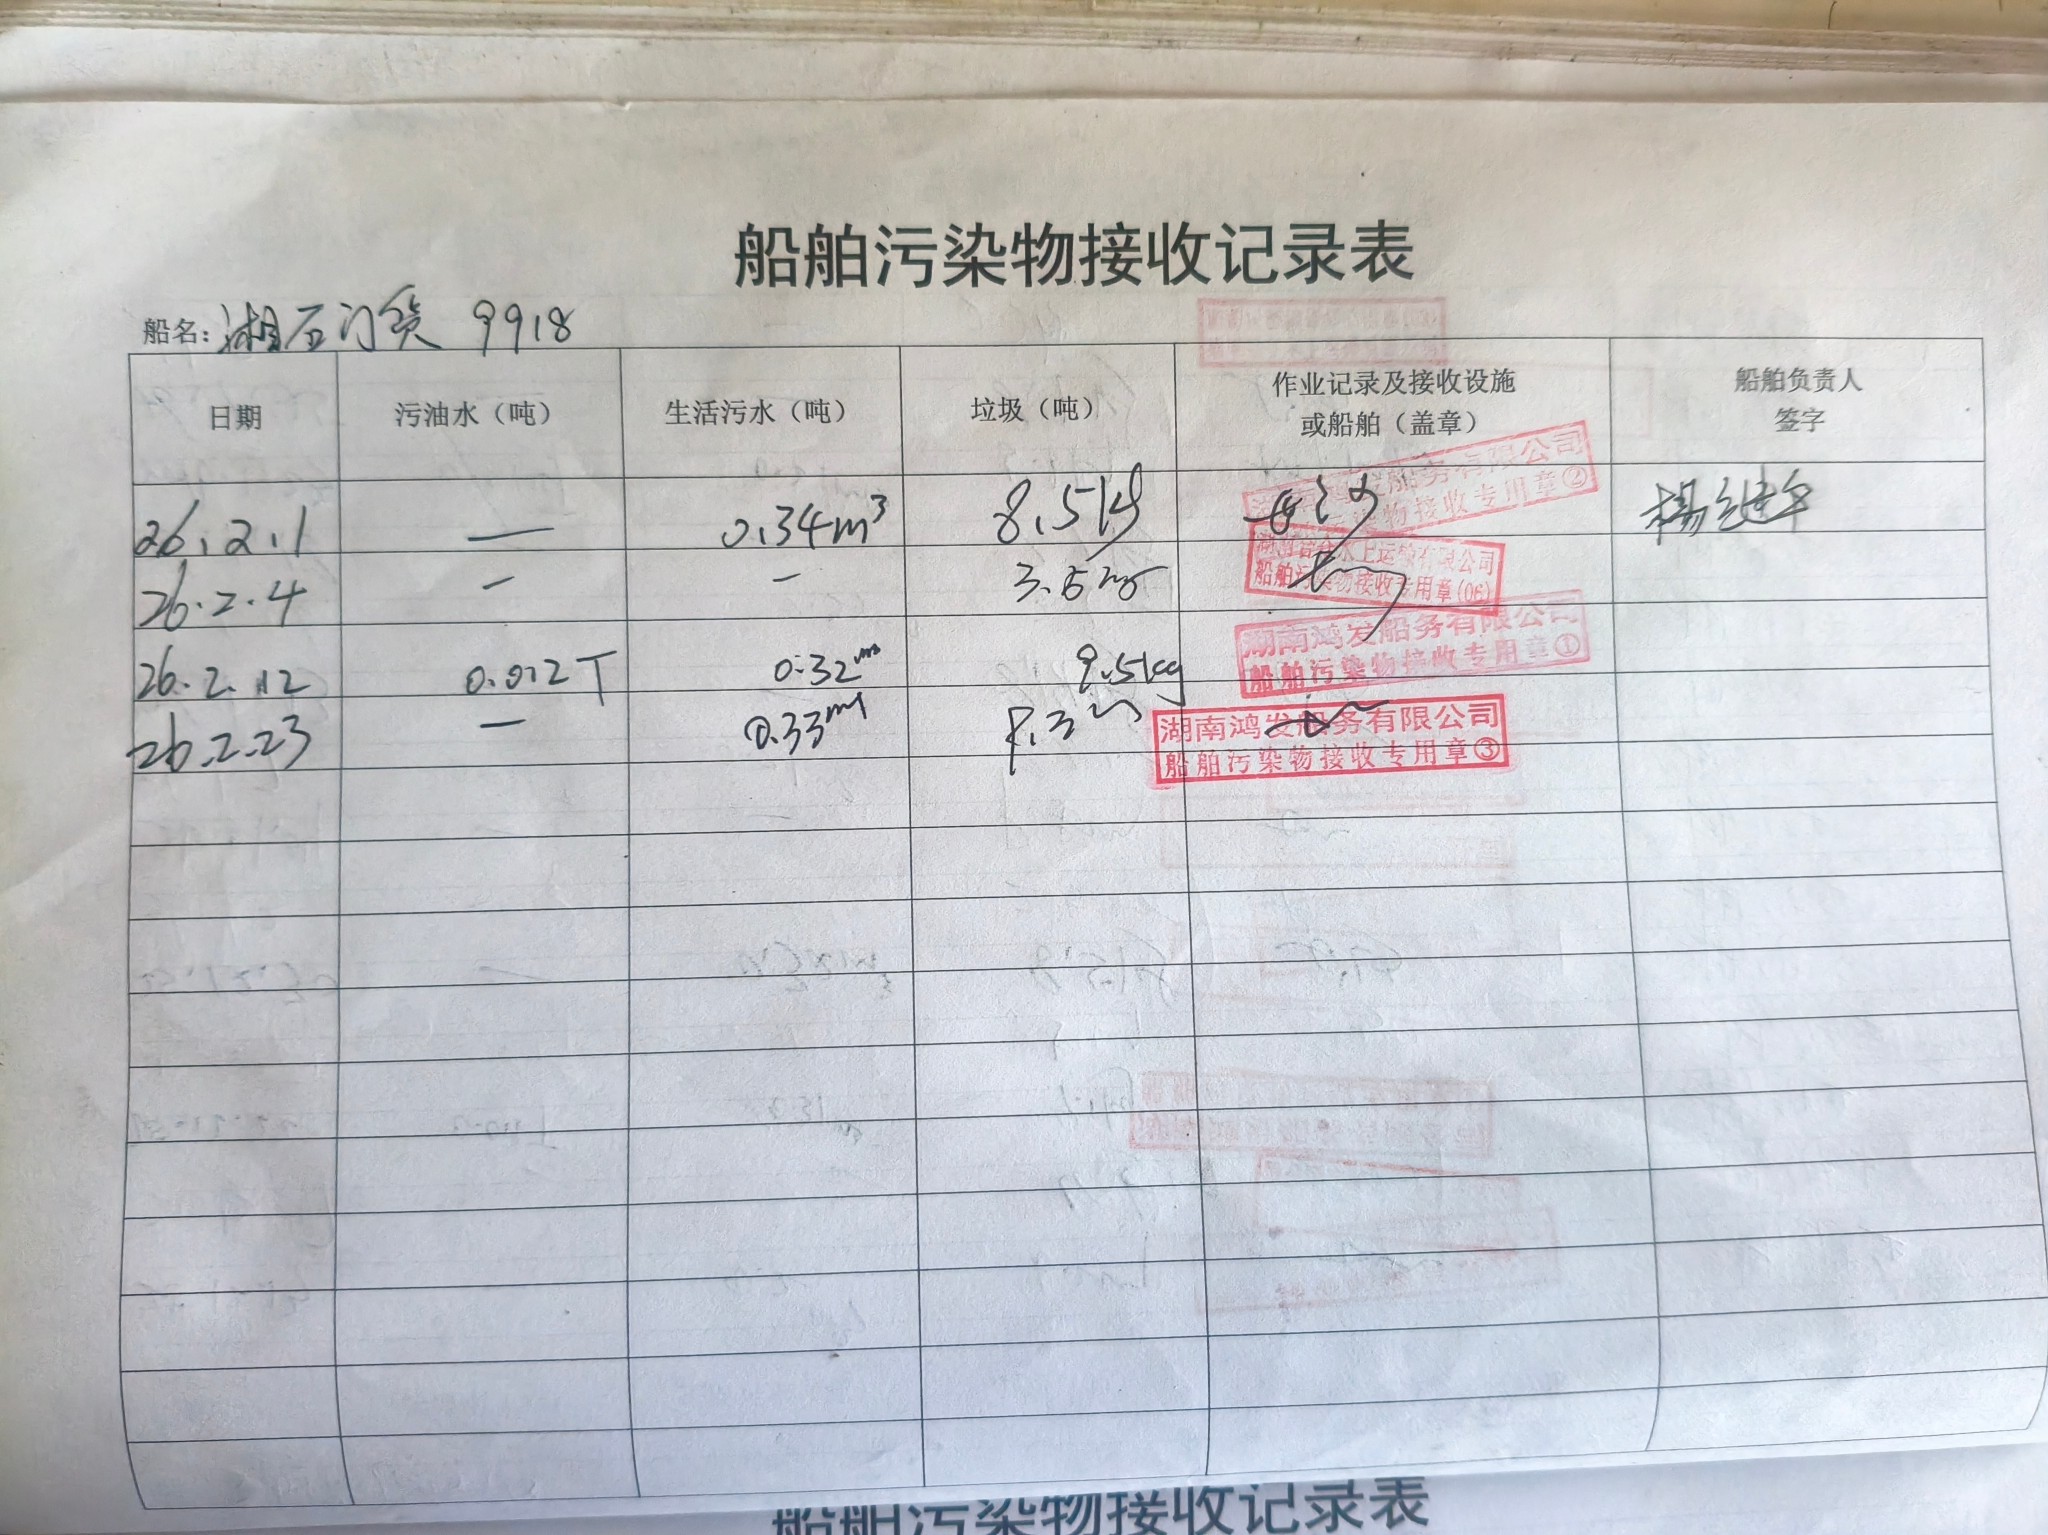 船舶污染物接收记录表
船名：湘石门货 9918
日期 污油水（吨） 生活污水（吨） 垃圾（吨） 作业记录及接收设施或船舶（盖章） 船舶负责人签字
26.2.1 — 0.34m³ 8.5kg
船舶污染物接收专用章②
26.2.4 — —
船舶污染物接收专用章(06)
26.2.12 0.012T 0.32 9.5kg
湖南鸿发船务有限公司
船舶污染物接收专用章①
26.2.23 — 0.33 8.3
湖南鸿发船务有限公司
船舶污染物接收专用章③
船舶污染物接收记录表